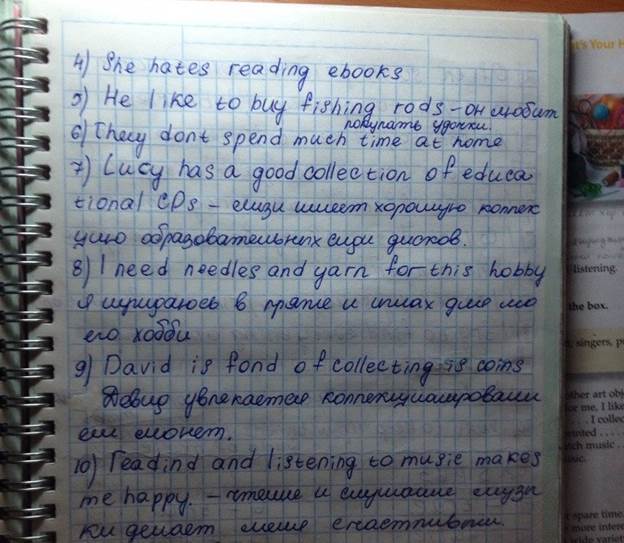 4) She hates reading ebooks
5) He like to buy fishing rods - он любит
покупать удочки.
6) They dont spend much time at home
7) Lucy has a good collection of educa
tional CDs - лизи имеет хорошую коллек
цию образовательных сиди дисков.
8) I need needles and yarn for this hobby
я нуждаюсь в пряже и иглах для мо
его хобби
9) David is fond of collecting is coins
Девид увлекается коллекциамировани
ем монет.
10) readind and listening to music makes
me happy. - чтение и слушание музы
ки делает меня счастливым.
t's Your H
listening.
the box.
singers, p
other art obj
for me, I like
. . . I collec
. . . .
music . .
spare time.
more intere
wide variet